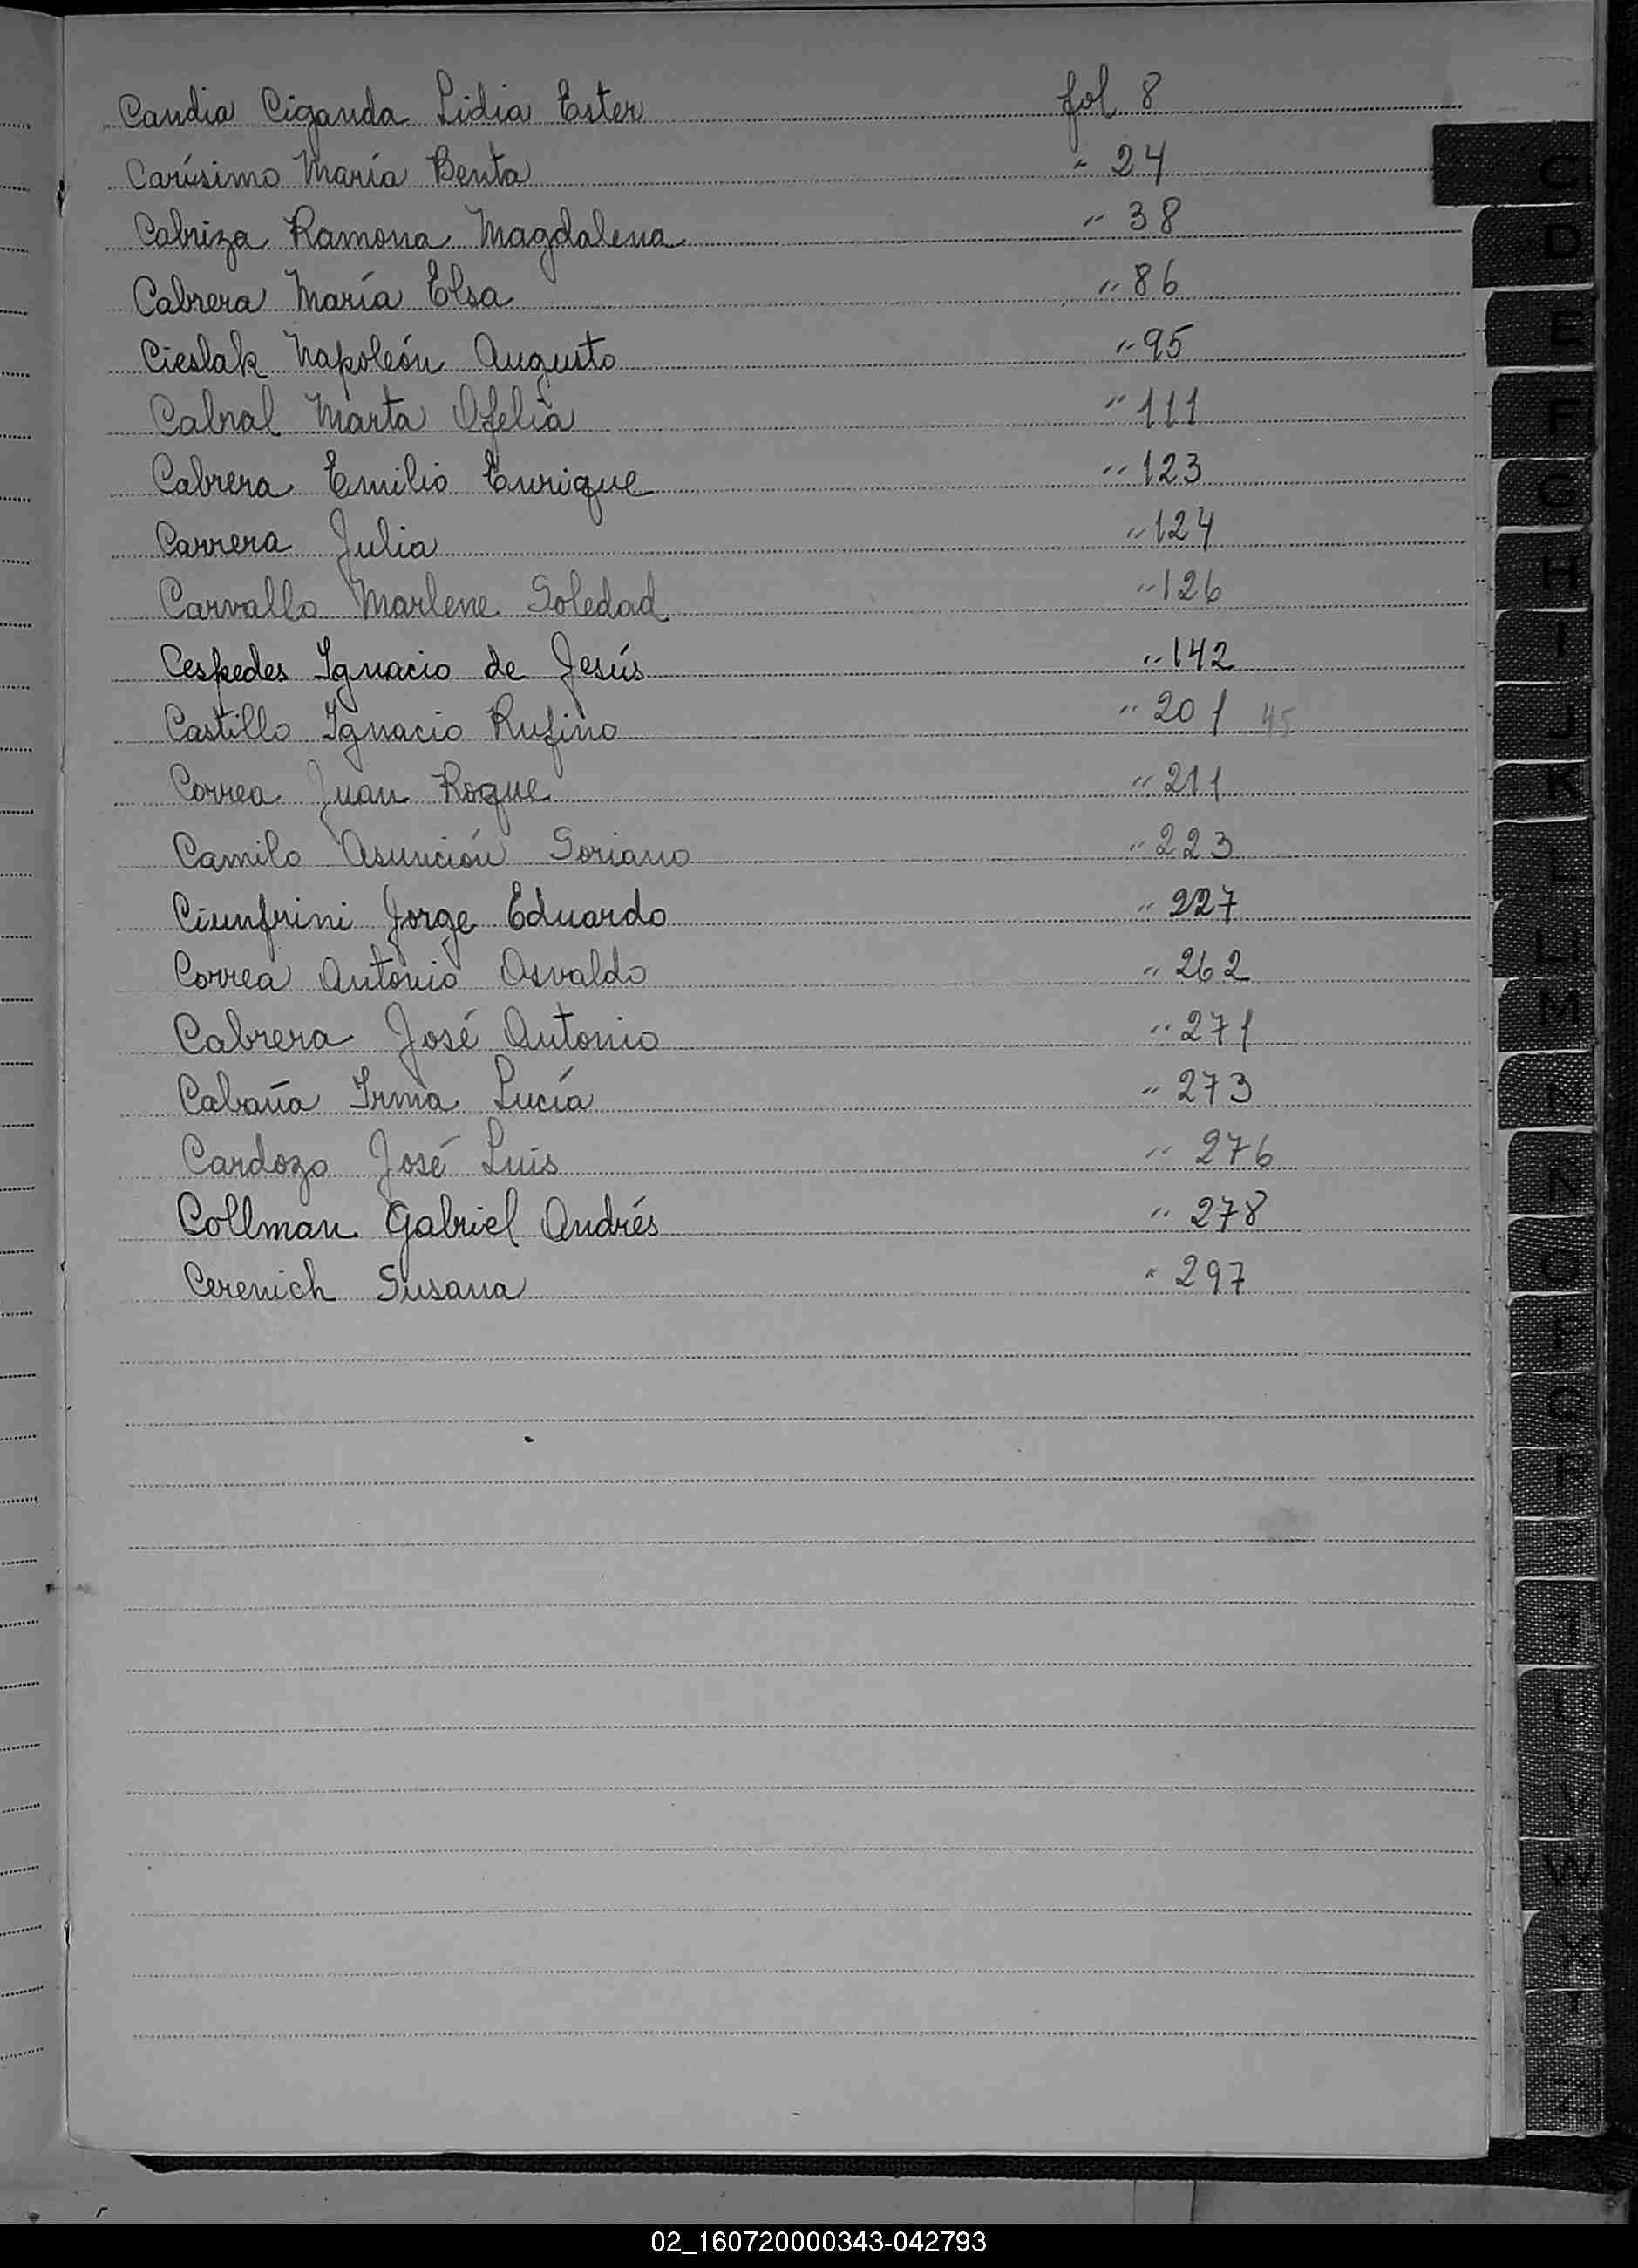 Candia Ciganda Lidia Ester fol 8
Carísimo María Benta " 24
Cabriza Ramona Magdalena " 38
Cabrera María Elsa " 86
Cieslak Napoleón Augusto " 95
Cabral Marta Ofelia " 111
Cabrera Emilio Enrique " 123
Carrera Julia " 124
Carvallo Marlene Soledad " 126
Cespedes Ignacio de Jesús " 142
Castillo Ignacio Rufino " 201 45
Correa Juan Roque " 211
Camilo Asunción Soriano " 223
Ciunfrini Jorge Eduardo " 227
Correa Antonio Osvaldo " 262
Cabrera José Antonio " 271
Cabaña Irma Lucía " 273
Cardozo José Luis " 276
Collman Gabriel Andrés " 278
Cerenich Susana " 297
C
D
E
F
G
H
I
J
K
L
LL
M
N
Ñ
O
P
Q
R
S
T
U
V
W
X
Y
Z
02_160720000343-042793